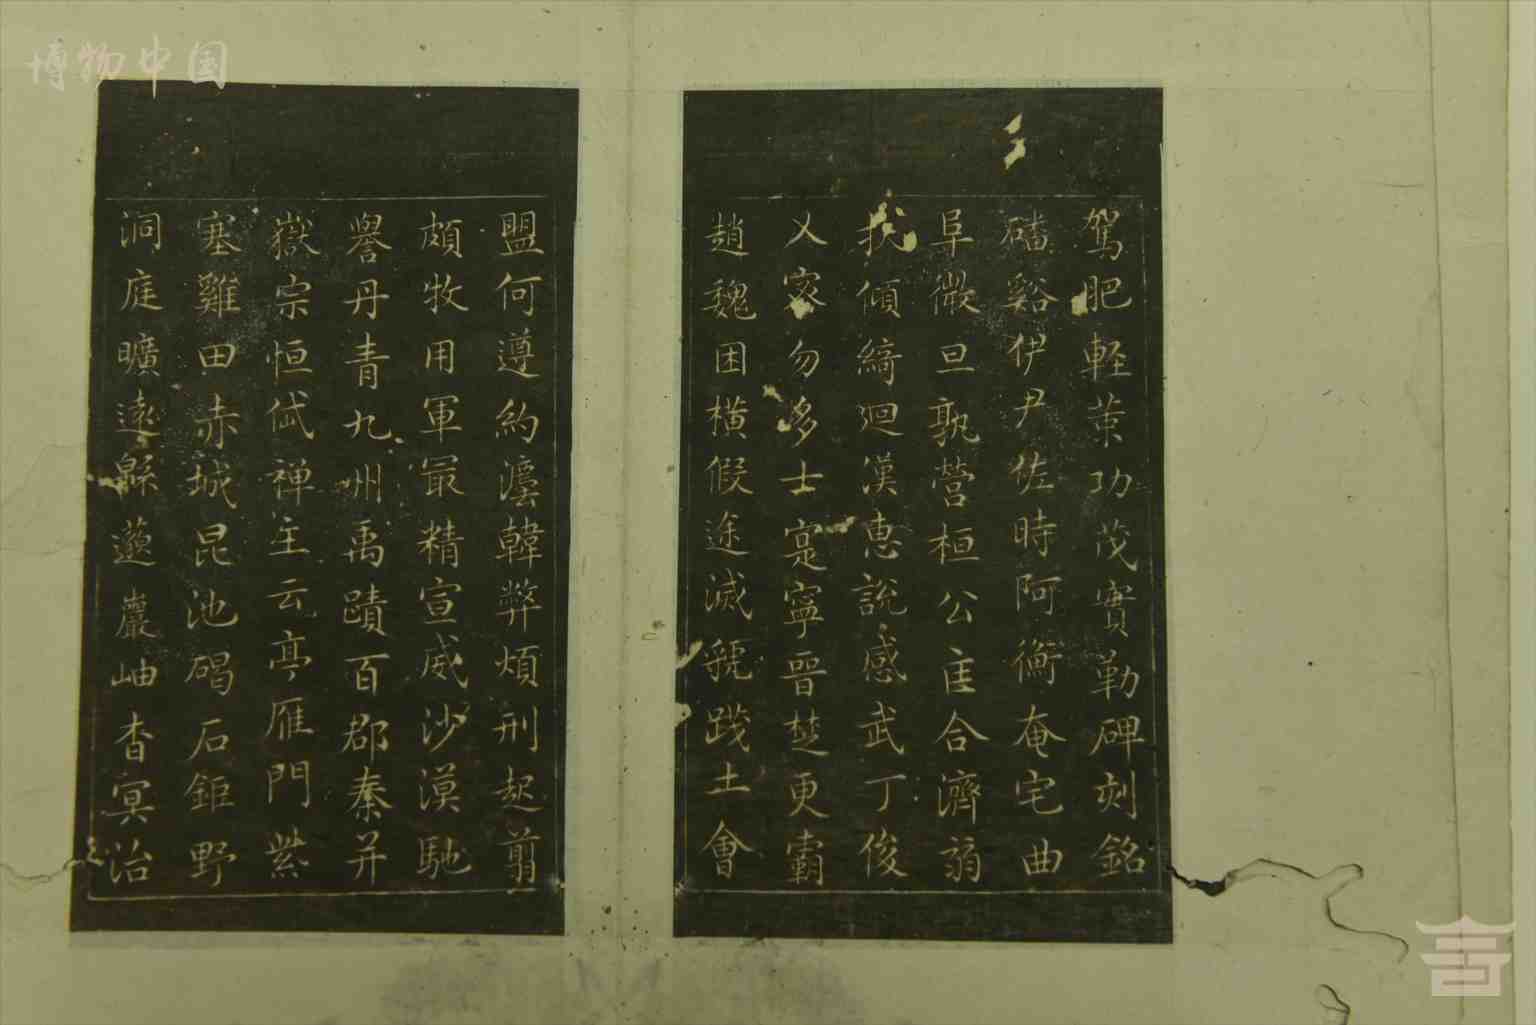 博物中国
駕肥軽茦功茂實勒碑刻銘
磻谿伊尹佐時阿衡奄宅曲
阜微旦孰營桓公匡合濟弱
扶傾綺迴漢惠說感武丁俊
乂密勿多士寔寧晉楚更霸
趙魏困橫假途滅虢踐土會
盟何遵約灋韓弊煩刑起翦
頗牧用軍冣精宣威沙漠馳
譽丹青九州禹蹟百郡秦并
嶽宗恒岱禪主云亭雁門紫
塞雞田赤城昆池碣石鉅野
洞庭曠遠緜邈巖岫杳冥治